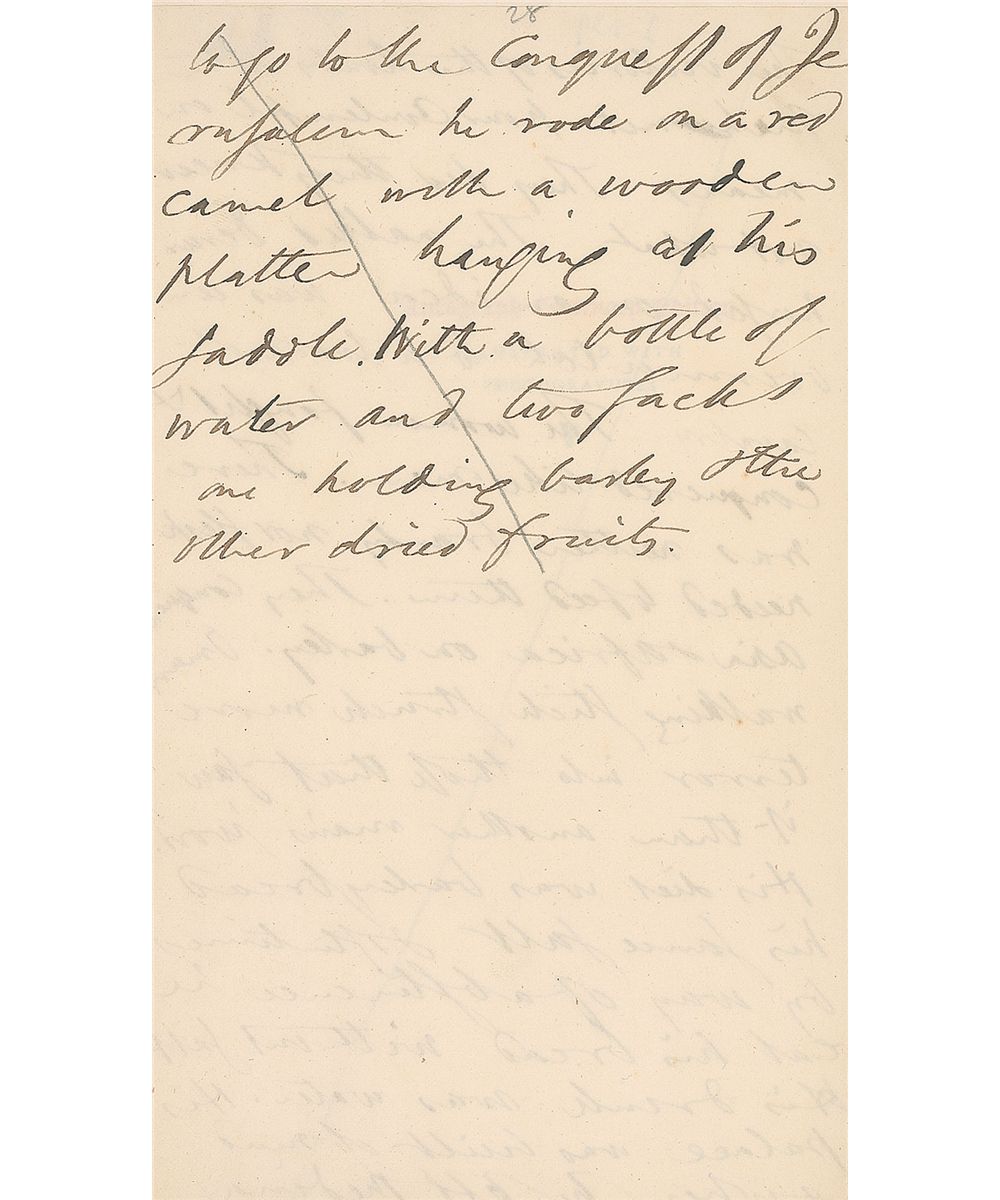 28
to go to the Conquest of Je
rusalem he rode on a red
camel with a wooden
platter hanging at his
saddle. With a bottle of
water and two sacks
one holding barley & the
other dried fruits.